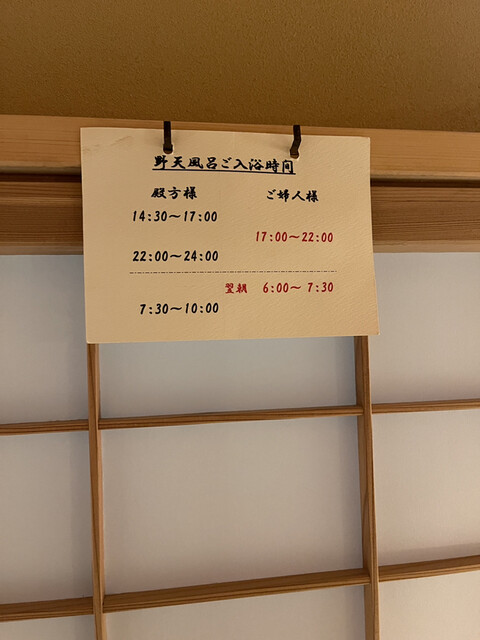 野天風呂ご入浴時間
殿方様 ご婦人様
14:30～17:00
17:00～22:00
22:00～24:00
翌朝 6:00～ 7:30
7:30～10:00